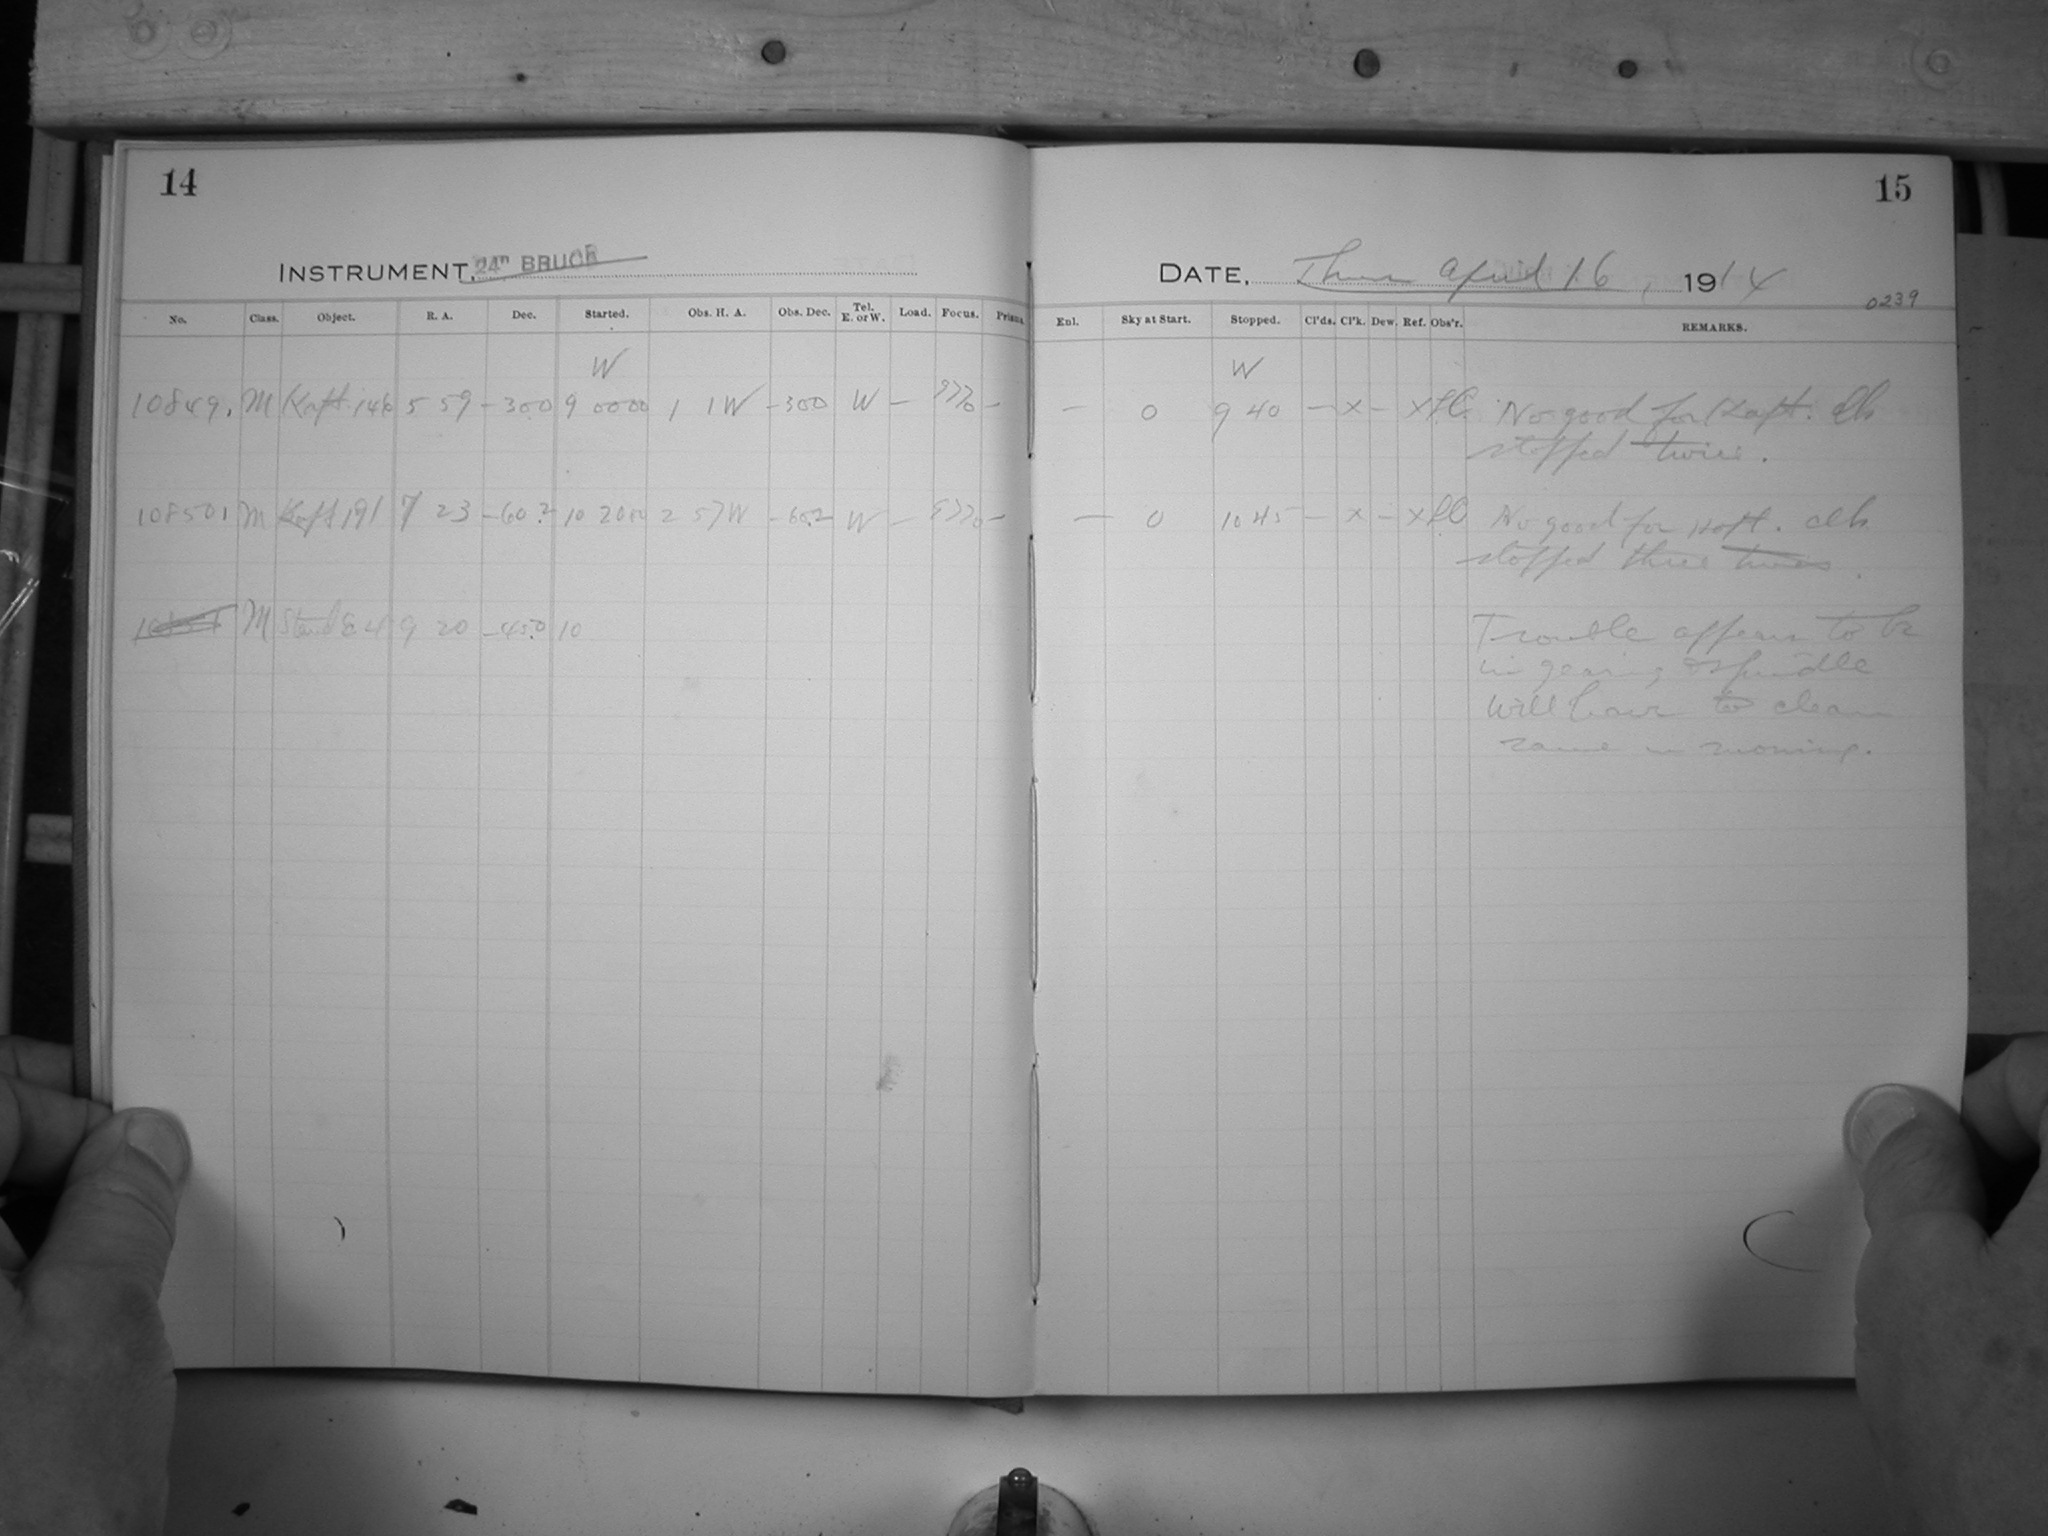 14
INSTRUMENT, 24" BRUCE
No. Class. Object. R. A. Dec. Started. Obs. H. A. Obs. Dec. Tel. E. or W. Load. Focus. Prisms.
W
10849, M Kapt. 146 5 59 -30.0 9 0000 1 1W -300 W - -
10850, M Kapt 191 7 23 -60.2 10 2000 2 57W -60.2 W - -
M Stand 9 20 -45.0 10
15
DATE, Thur April 16, 1914
0239
Enl. Sky at Start. Stopped. Cl'ds. Cl'k. Dew. Ref. Obs'r. REMARKS.
W
- 0 9 40 - x - x No good for Kapt. clk
stopped twice.
- 0 10 45 - x - x No good for Kapt. clk
stopped three twice.
Trouble appears to be
in gearing & spindle
will have to clean
same in morning.